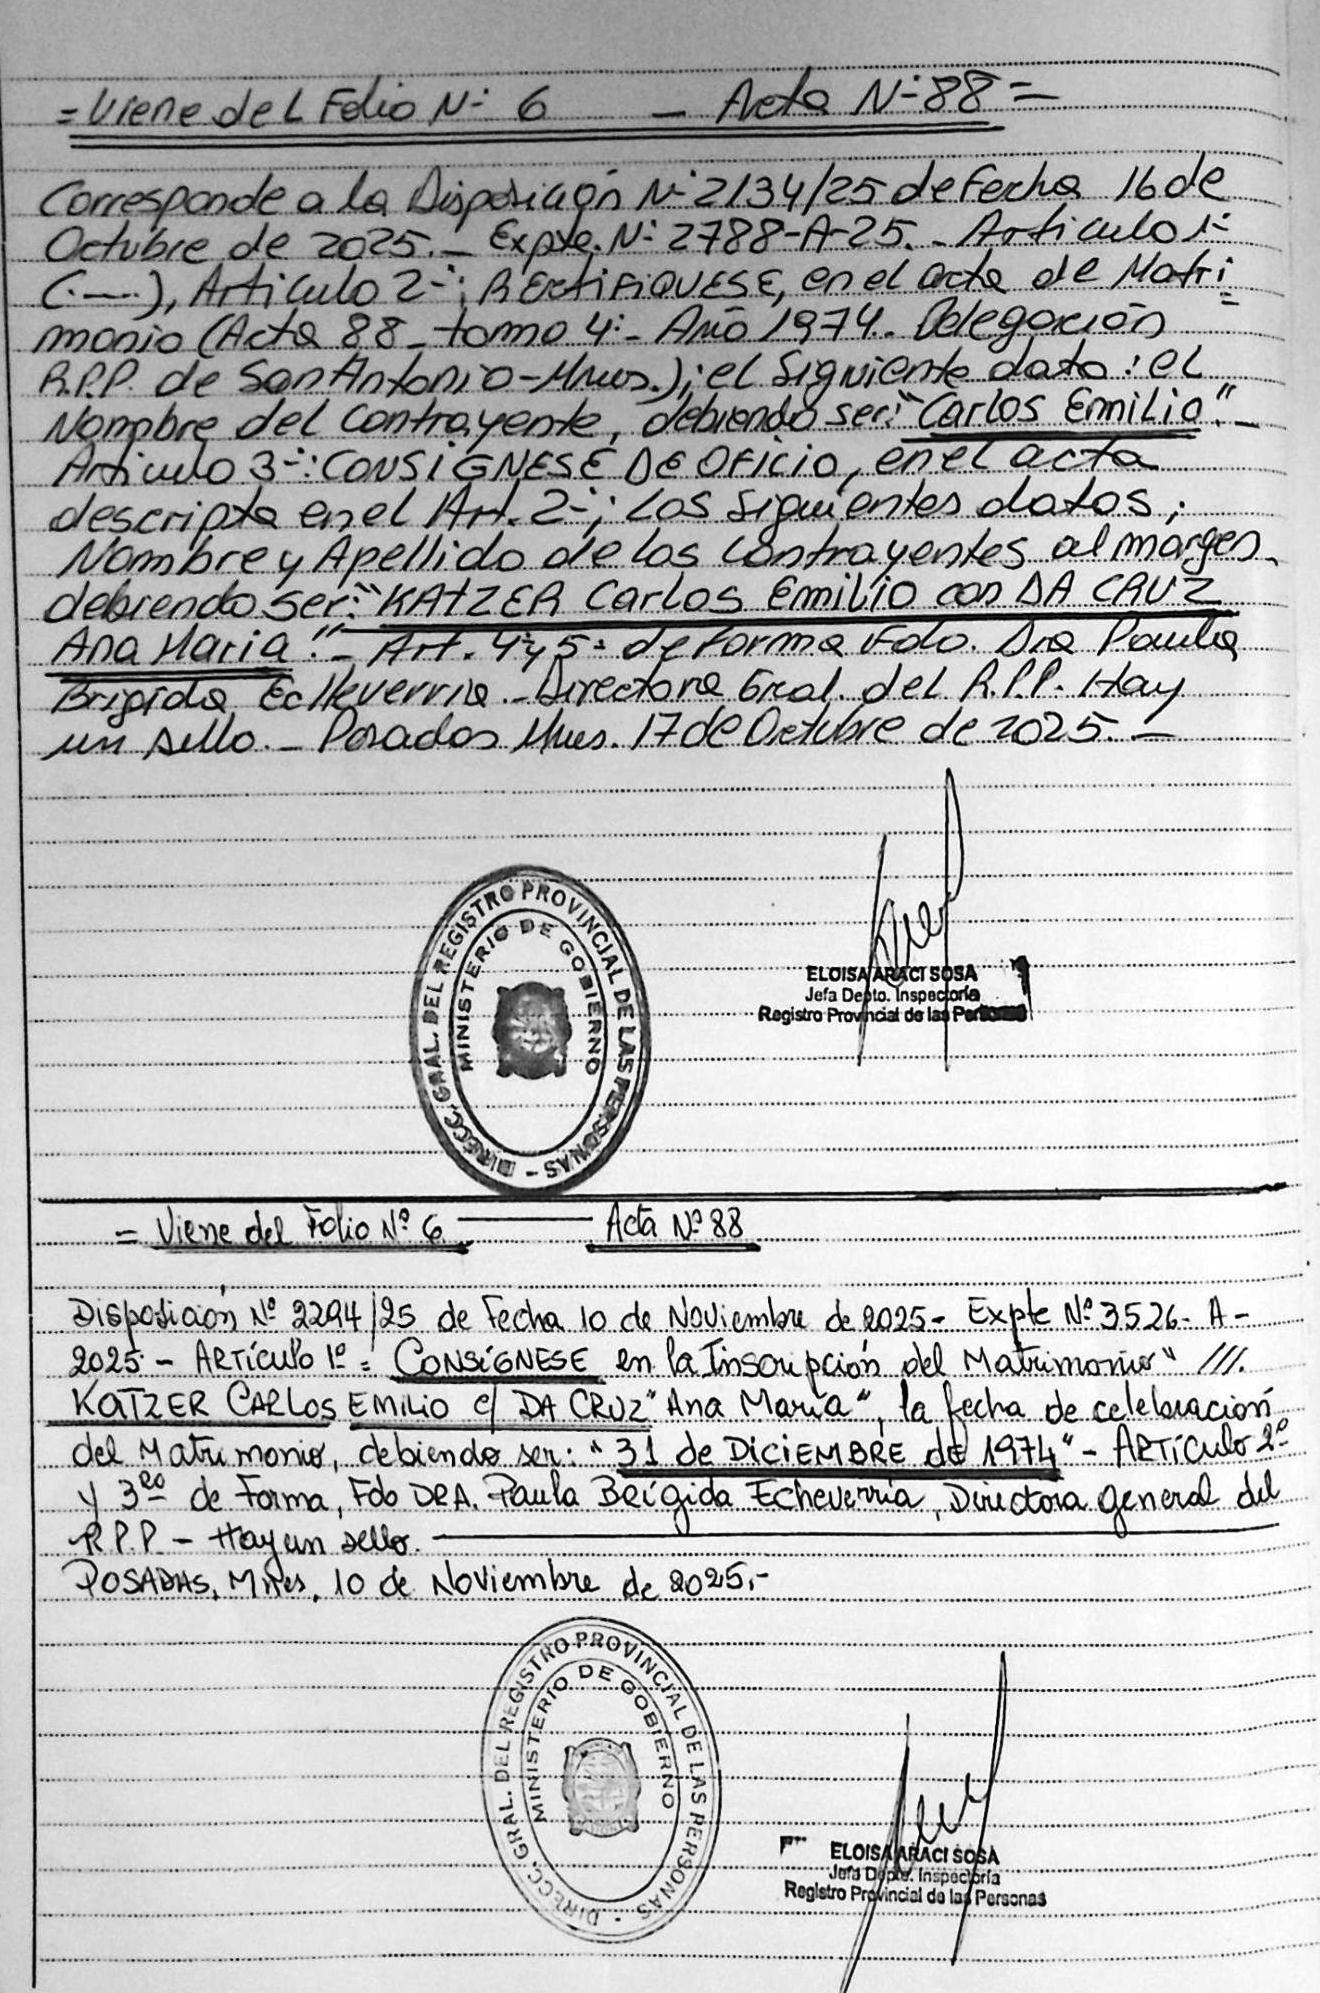 = Viene del Folio N° 6 — Acta N° 88 =
Corresponde a la Disposición N° 2134/25 de Fecha 16 de
Octubre de 2025.- Expte. N° 2788-A-25.- Articulo 1°
(.—.), Articulo 2°; RECTIFIQUESE, en el acta de Matri=
monio (Acta 88 - tomo 4° - Año 1974. Delegación
R.P.P. de San Antonio-Mnes.); el Siguiente dato: el
Nombre del contrayente, debiendo ser: "Carlos Emilio".-
Articulo 3°: CONSIGNESE DE OFICIO, en el acta
descripta en el Art. 2°; los siguientes datos;
Nombre y Apellido de los contrayentes al margen,
debiendo ser: "KATZER Carlos Emilio con DA CRUZ
Ana Maria".- Art. 4 y 5° de forma Fdo. Dra Paula
Brigida Echeverria.- Directora Gral. del R.P.P. Hay
un sello.- Posadas Mnes. 17 de Octubre de 2025.-
DIRECC. GRAL. DEL REGISTRO PROVINCIAL DE LAS PERSONAS -
MINISTERIO DE GOBIERNO
ELOISA ARACI SOSA
Jefa Depto. Inspectoría
Registro Provincial de las Personas
= Viene del Folio Nº 6 — Acta Nº 88
Disposición Nº 2294/25 de Fecha 10 de Noviembre de 2025- Expte Nº 3526- A -
2025 - ARTÍCULO 1º = CONSÍGNESE en la Inscripción del Matrimonio " ///.
KATZER CARLOS EMILIO c/ DA CRUZ "Ana María", la fecha de celebración
del Matrimonio, debiendo ser: "31 de DICIEMBRE de 1974" - ARTÍCULO 2º
y 3ero de Forma, Fdo DRA. Paula Brígida Echeverría, Directora general del
R.P.P - Hay un sello.
POSADAS, Mnes, 10 de Noviembre de 2025.-
DIRECC. GRAL. DEL REGISTRO PROVINCIAL DE LAS PERSONAS -
MINISTERIO DE GOBIERNO
ELOISA ARACI SOSA
Jefa Depto. Inspectoría
Registro Provincial de las Personas